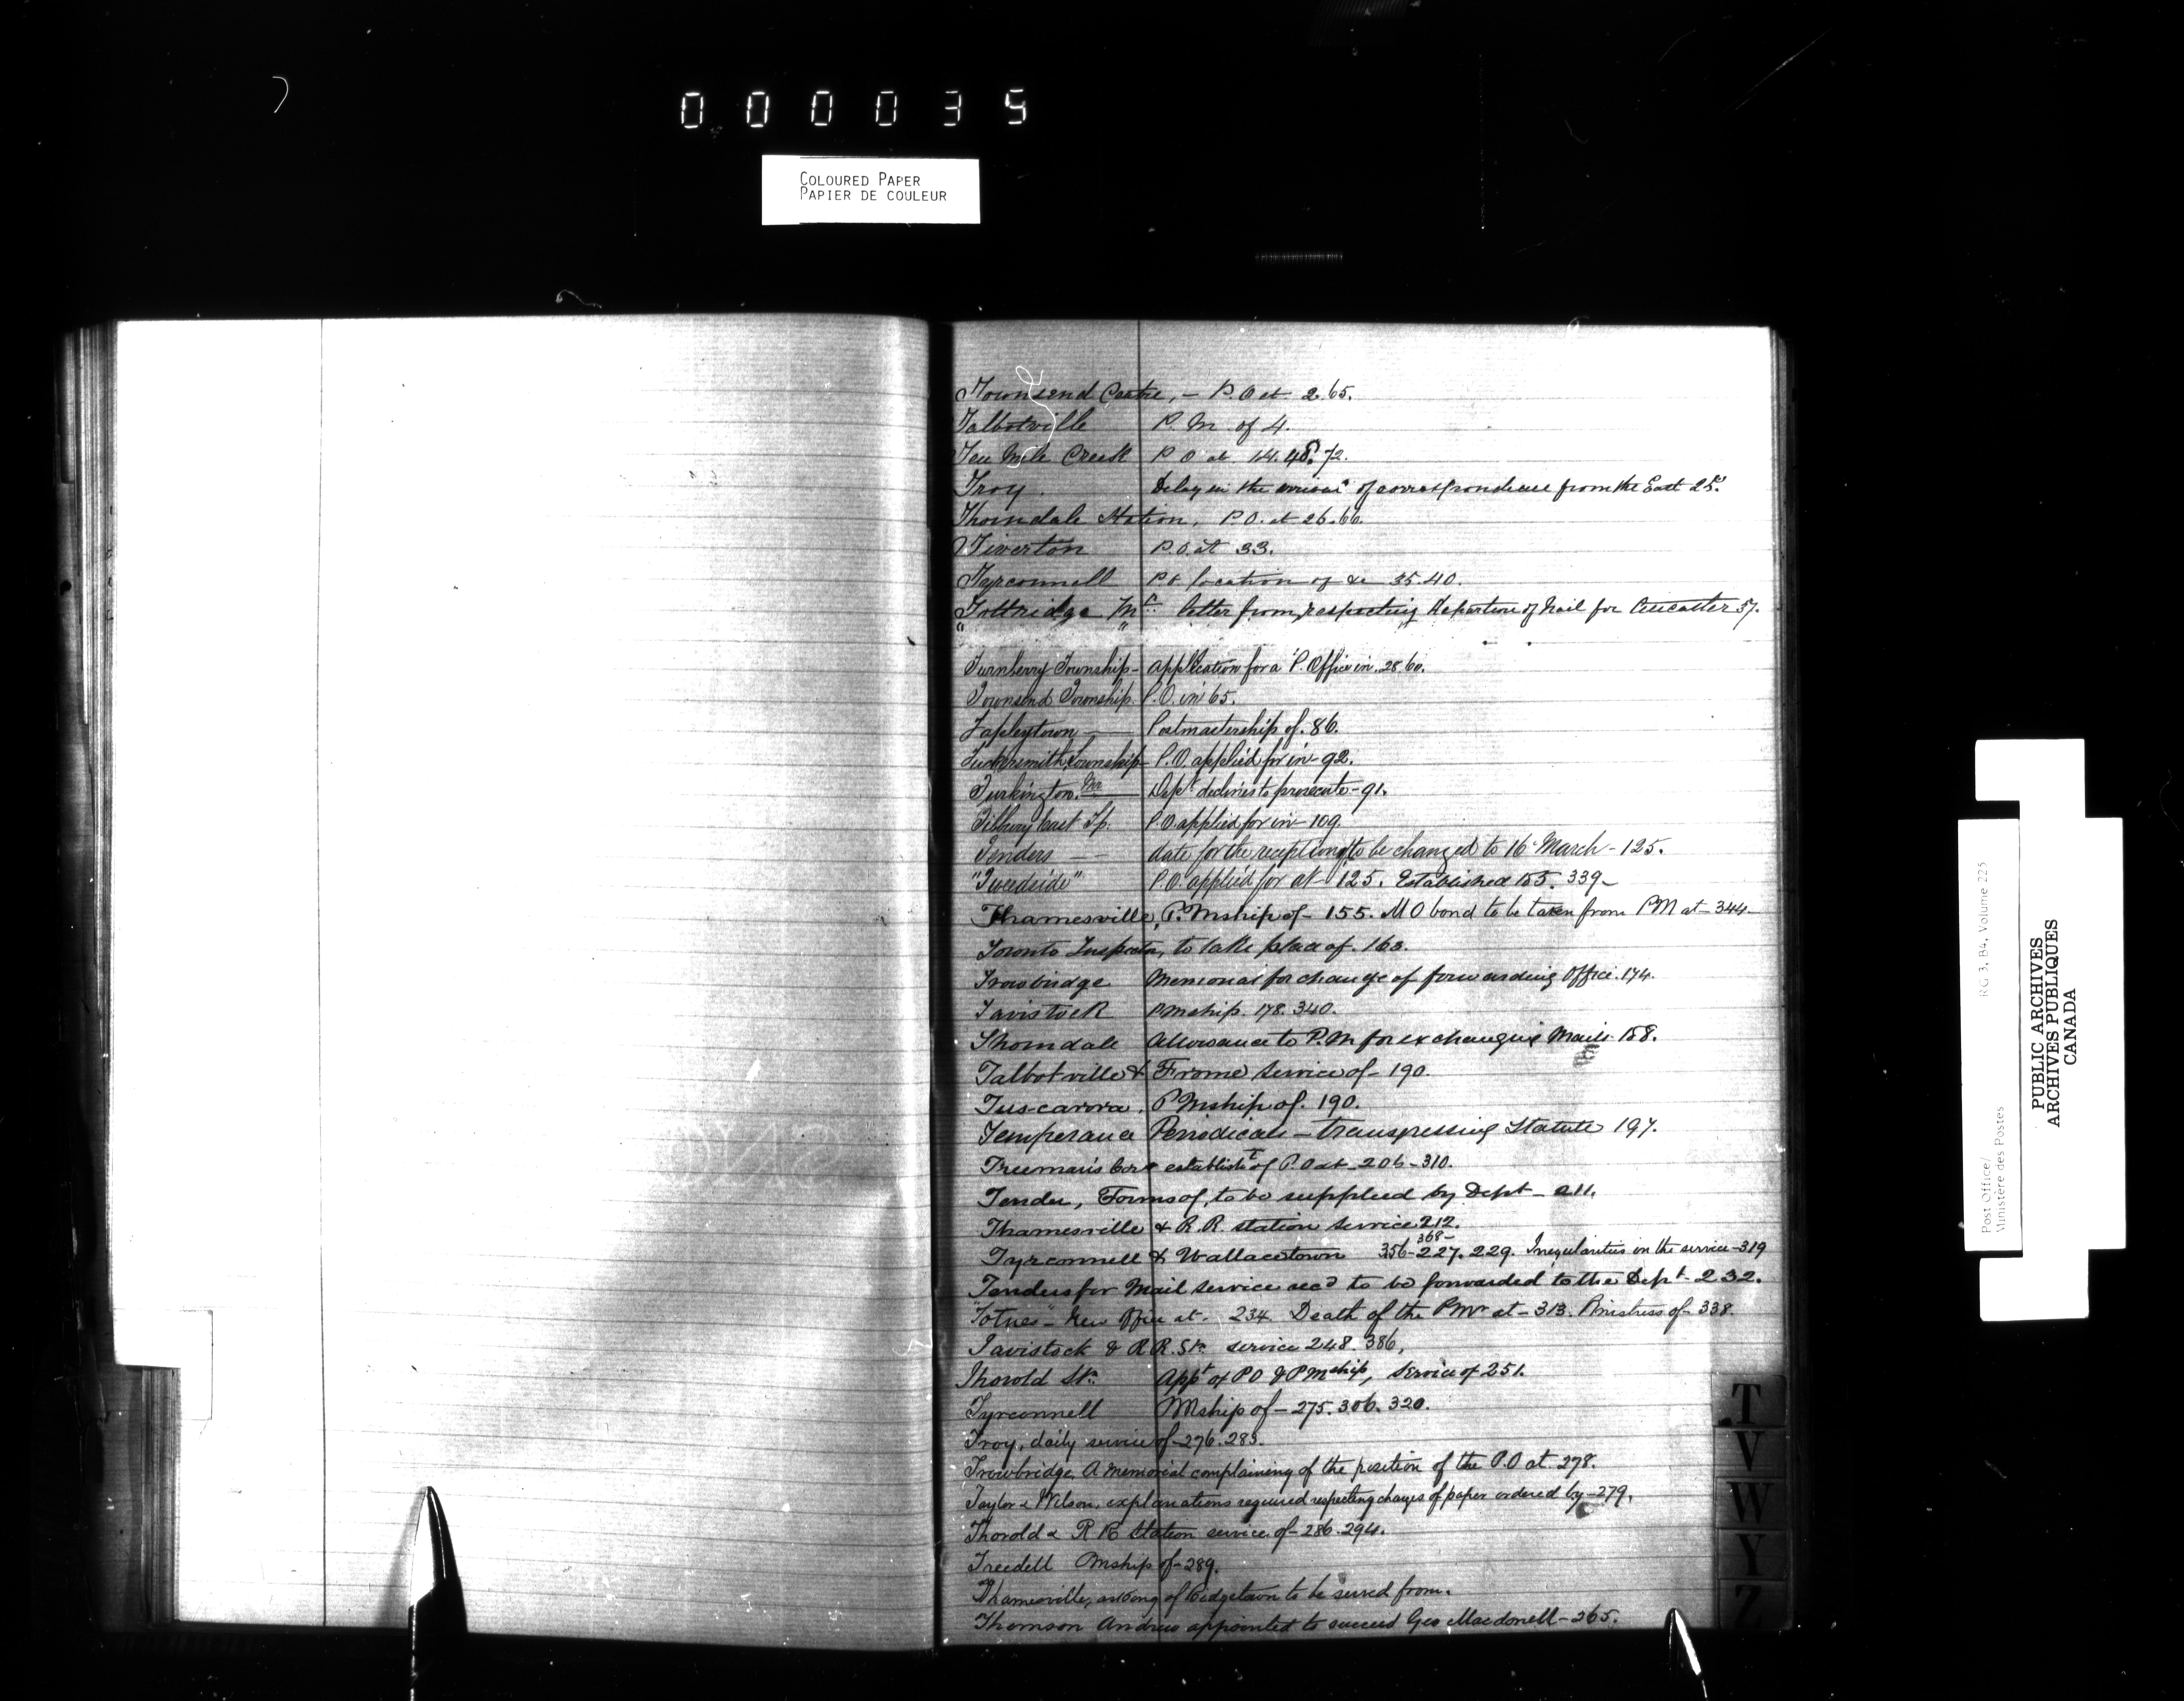 000035
COLOURED PAPER
PAPIER DE COULEUR
Townsend Centre, – P.O at 2.65.
Talbotville P.M of 4.
Ten Mile Creek P O at 14.48.72.
Troy. Delay in the arrival of correspondence from the East 25.
Thorndale Station, P.O. at 26.66.
Tiverton P.O. at 33.
Tyrconnell PO location of &c 35.40.
Tottridge Mr. letter from, respecting departure of Mail for Ancaster 57.
" "
Turnberry Township – application for a P. Office in. 28.60.
Townsend Township. P.O. in 65.
Tapleytown — Postmastership of. 86.
Tuckersmith Township – P.O. applied for in – 92.
Turkington. Mr — Dept declines to prosecute – 91.
Tilbury East Tp. P.O. applied for in – 109
Tenders — date for the reception of to be changed to 16 March – 125.
"Tweedside" P.O. applied for at 125. Established 155. 339 –
Thamesville, P. Mship of – 155. M O bond to be taken from PM at – 344 –
Toronto Inspector, to take place of. 163.
Trowbridge Memorial for change of forwarding Office. 174.
Tavistock PMship. 178. 340.
Thorndale Allowance to P.M for exchanging Mails 188.
Talbotville & Frome Service of – 190.
Tuscarora. P Mship of. 190.
Temperance Periodicals – transgressing Statute 197.
Freeman's Cors establisht of P.O at – 206 – 310.
Tender, Forms of, to be supplied by Dept – 211.
Thamesville & R.R. station service 212.
Tyrconnell & Wallacetown 356 – 368 – 227. 229. Irregularities in the service – 319
Tenders for Mail service recd to be forwarded to the Dept – 232.
"Totnes" – New Office at. 234. Death of the PMr at – 313. Pmistress of – 338.
Tavistock & R R. Stn service 248. 386,
Thorold Stn. Appt of PO & PMship, service of 251.
Tyrconnell PMship of – 275. 306. 320.
Troy, daily service of – 276. 283.
Trowbridge, A memorial complaining of the position of the P.O at. 278.
Taylor & Wilson, explanations required respecting charges of paper ordered by – 279.
Thorold & R R Station service of – 286. 294.
Treedell Pmship of – 289.
Thamesville, of Ridgetown to be served from.
Thomson Andrew appointed to succeed Geo Macdonell – 365.
T
V
W
Y
Z
Post Office/
Ministère des Postes
RG 3, B4, Volume 225
PUBLIC ARCHIVES
ARCHIVES PUBLIQUES
CANADA